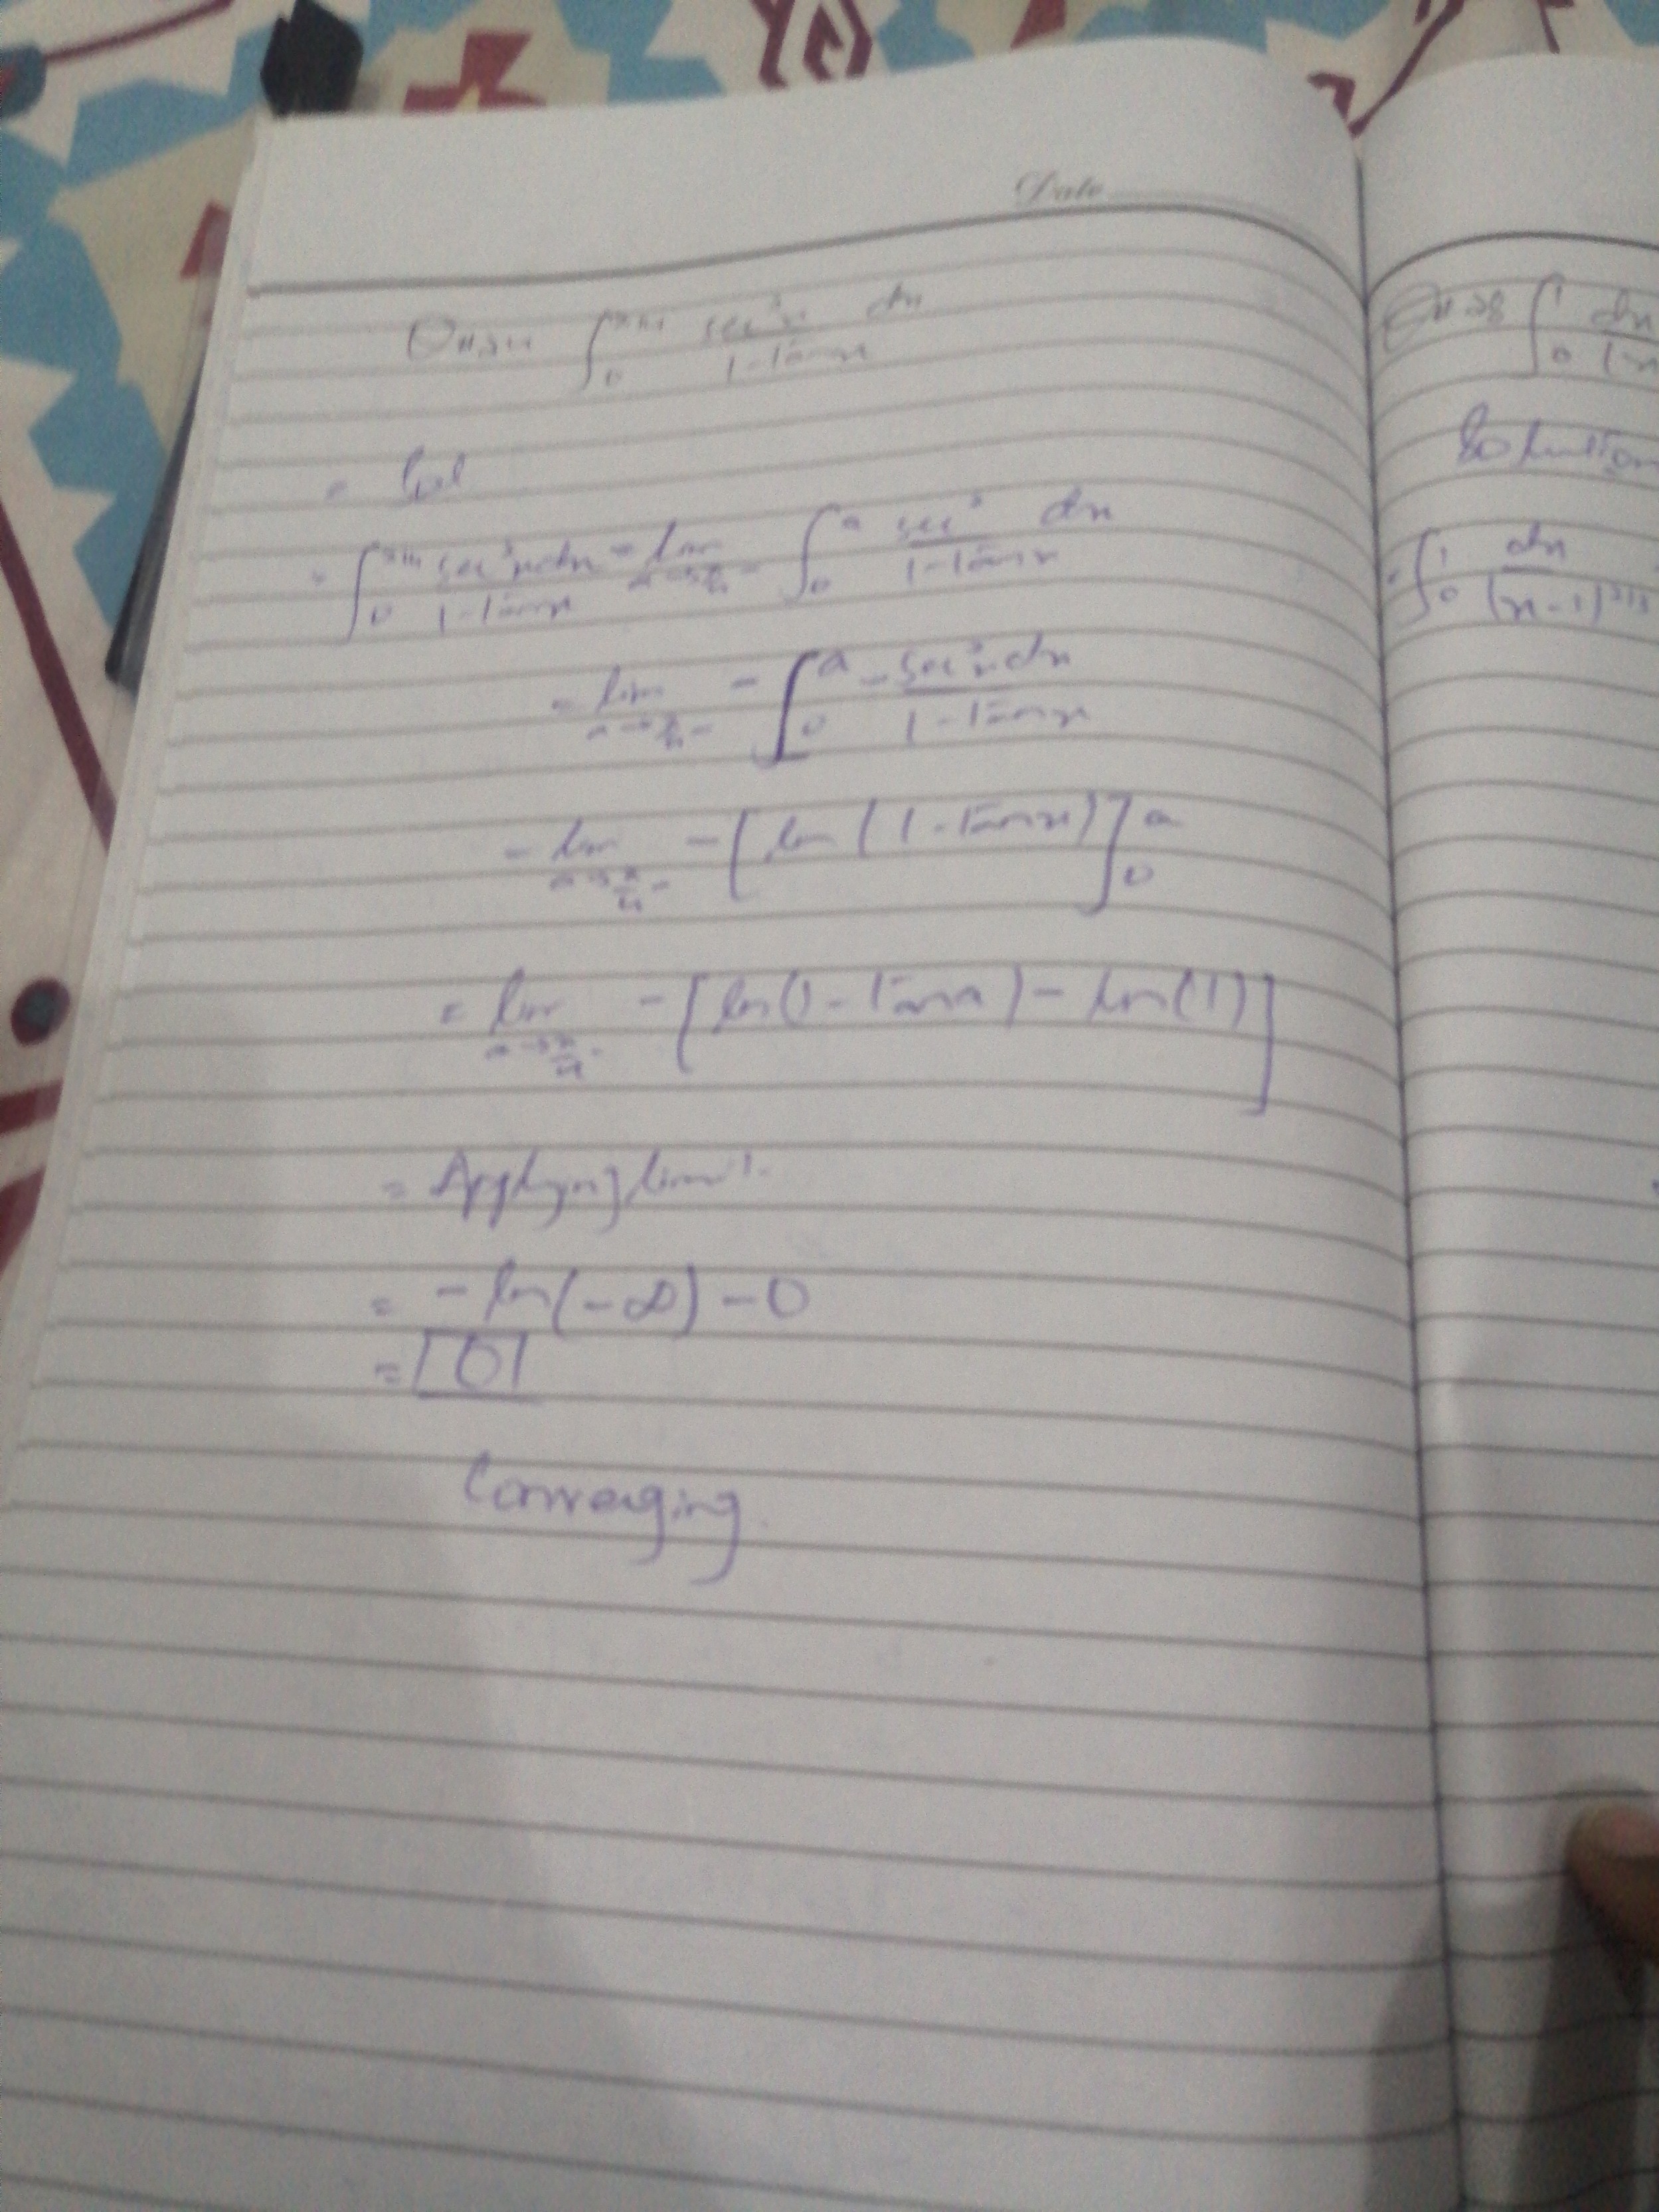 Date
∫₀^π/4 sec²x/1-tanx dx
= Sol
= ∫₀^π/4 sec²x dx/1-tanx = lim a→π/4- ∫₀^a sec²/1-tanx dx
= lim a→π/4- - ∫₀^a -sec²x dx/1-tanx
= lim a→π/4- -[ln(1-tanx)]₀^a
= lim a→π/4- -[ln(1-tana)-ln(1)]
= Applying limit.
= -ln(-∞)-0
= 0
Converging.
∫₀^1 dx
Solution
= ∫₀^1 dx/(x-1)^2/3